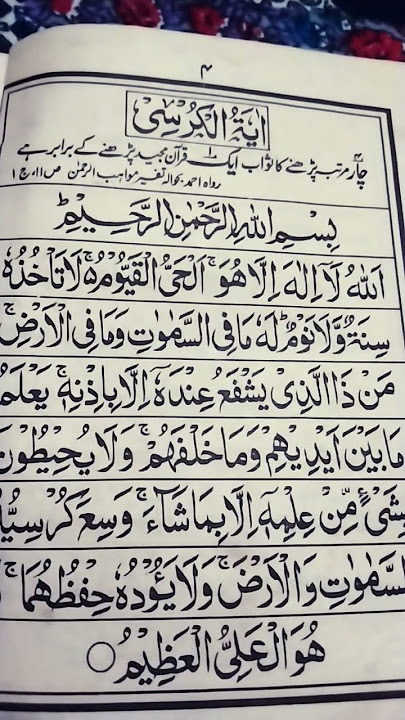 ۴
اٰیَةُ الْکُرْسِیْ
چار مرتبہ پڑھنے کا ثواب ایک قرآن مجید پڑھنے کے برابر ہے
رواہ احمد بحوالہ تفسیر مواہب الرحمٰن ص ۱۱، ج ۱
بِسْمِ اللهِ الرَّحْمٰنِ الرَّحِیْمِ
اَللهُ لَآ اِلٰهَ اِلَّا هُوَ ۚ اَلْحَیُّ الْقَیُّوْمُ ۵ لَا تَاْخُذُهٗ
سِنَةٌ وَّلَا نَوْمٌ ؕ لَهٗ مَا فِی السَّمٰوٰتِ وَمَا فِی الْاَرْضِ ؕ
مَنْ ذَا الَّذِیْ یَشْفَعُ عِنْدَهٗٓ اِلَّا بِاِذْنِهٖ ؕ یَعْلَمُ
مَا بَیْنَ اَیْدِیْهِمْ وَمَا خَلْفَهُمْ ۚ وَلَا یُحِیْطُوْنَ
بِشَیْءٍ مِّنْ عِلْمِهٖٓ اِلَّا بِمَا شَآءَ ۚ وَسِعَ کُرْسِیُّهُ
السَّمٰوٰتِ وَالْاَرْضَ ۚ وَلَا یَـُٔوْدُهٗ حِفْظُهُمَا ۚ
هُوَ الْعَلِیُّ الْعَظِیْمُ ○